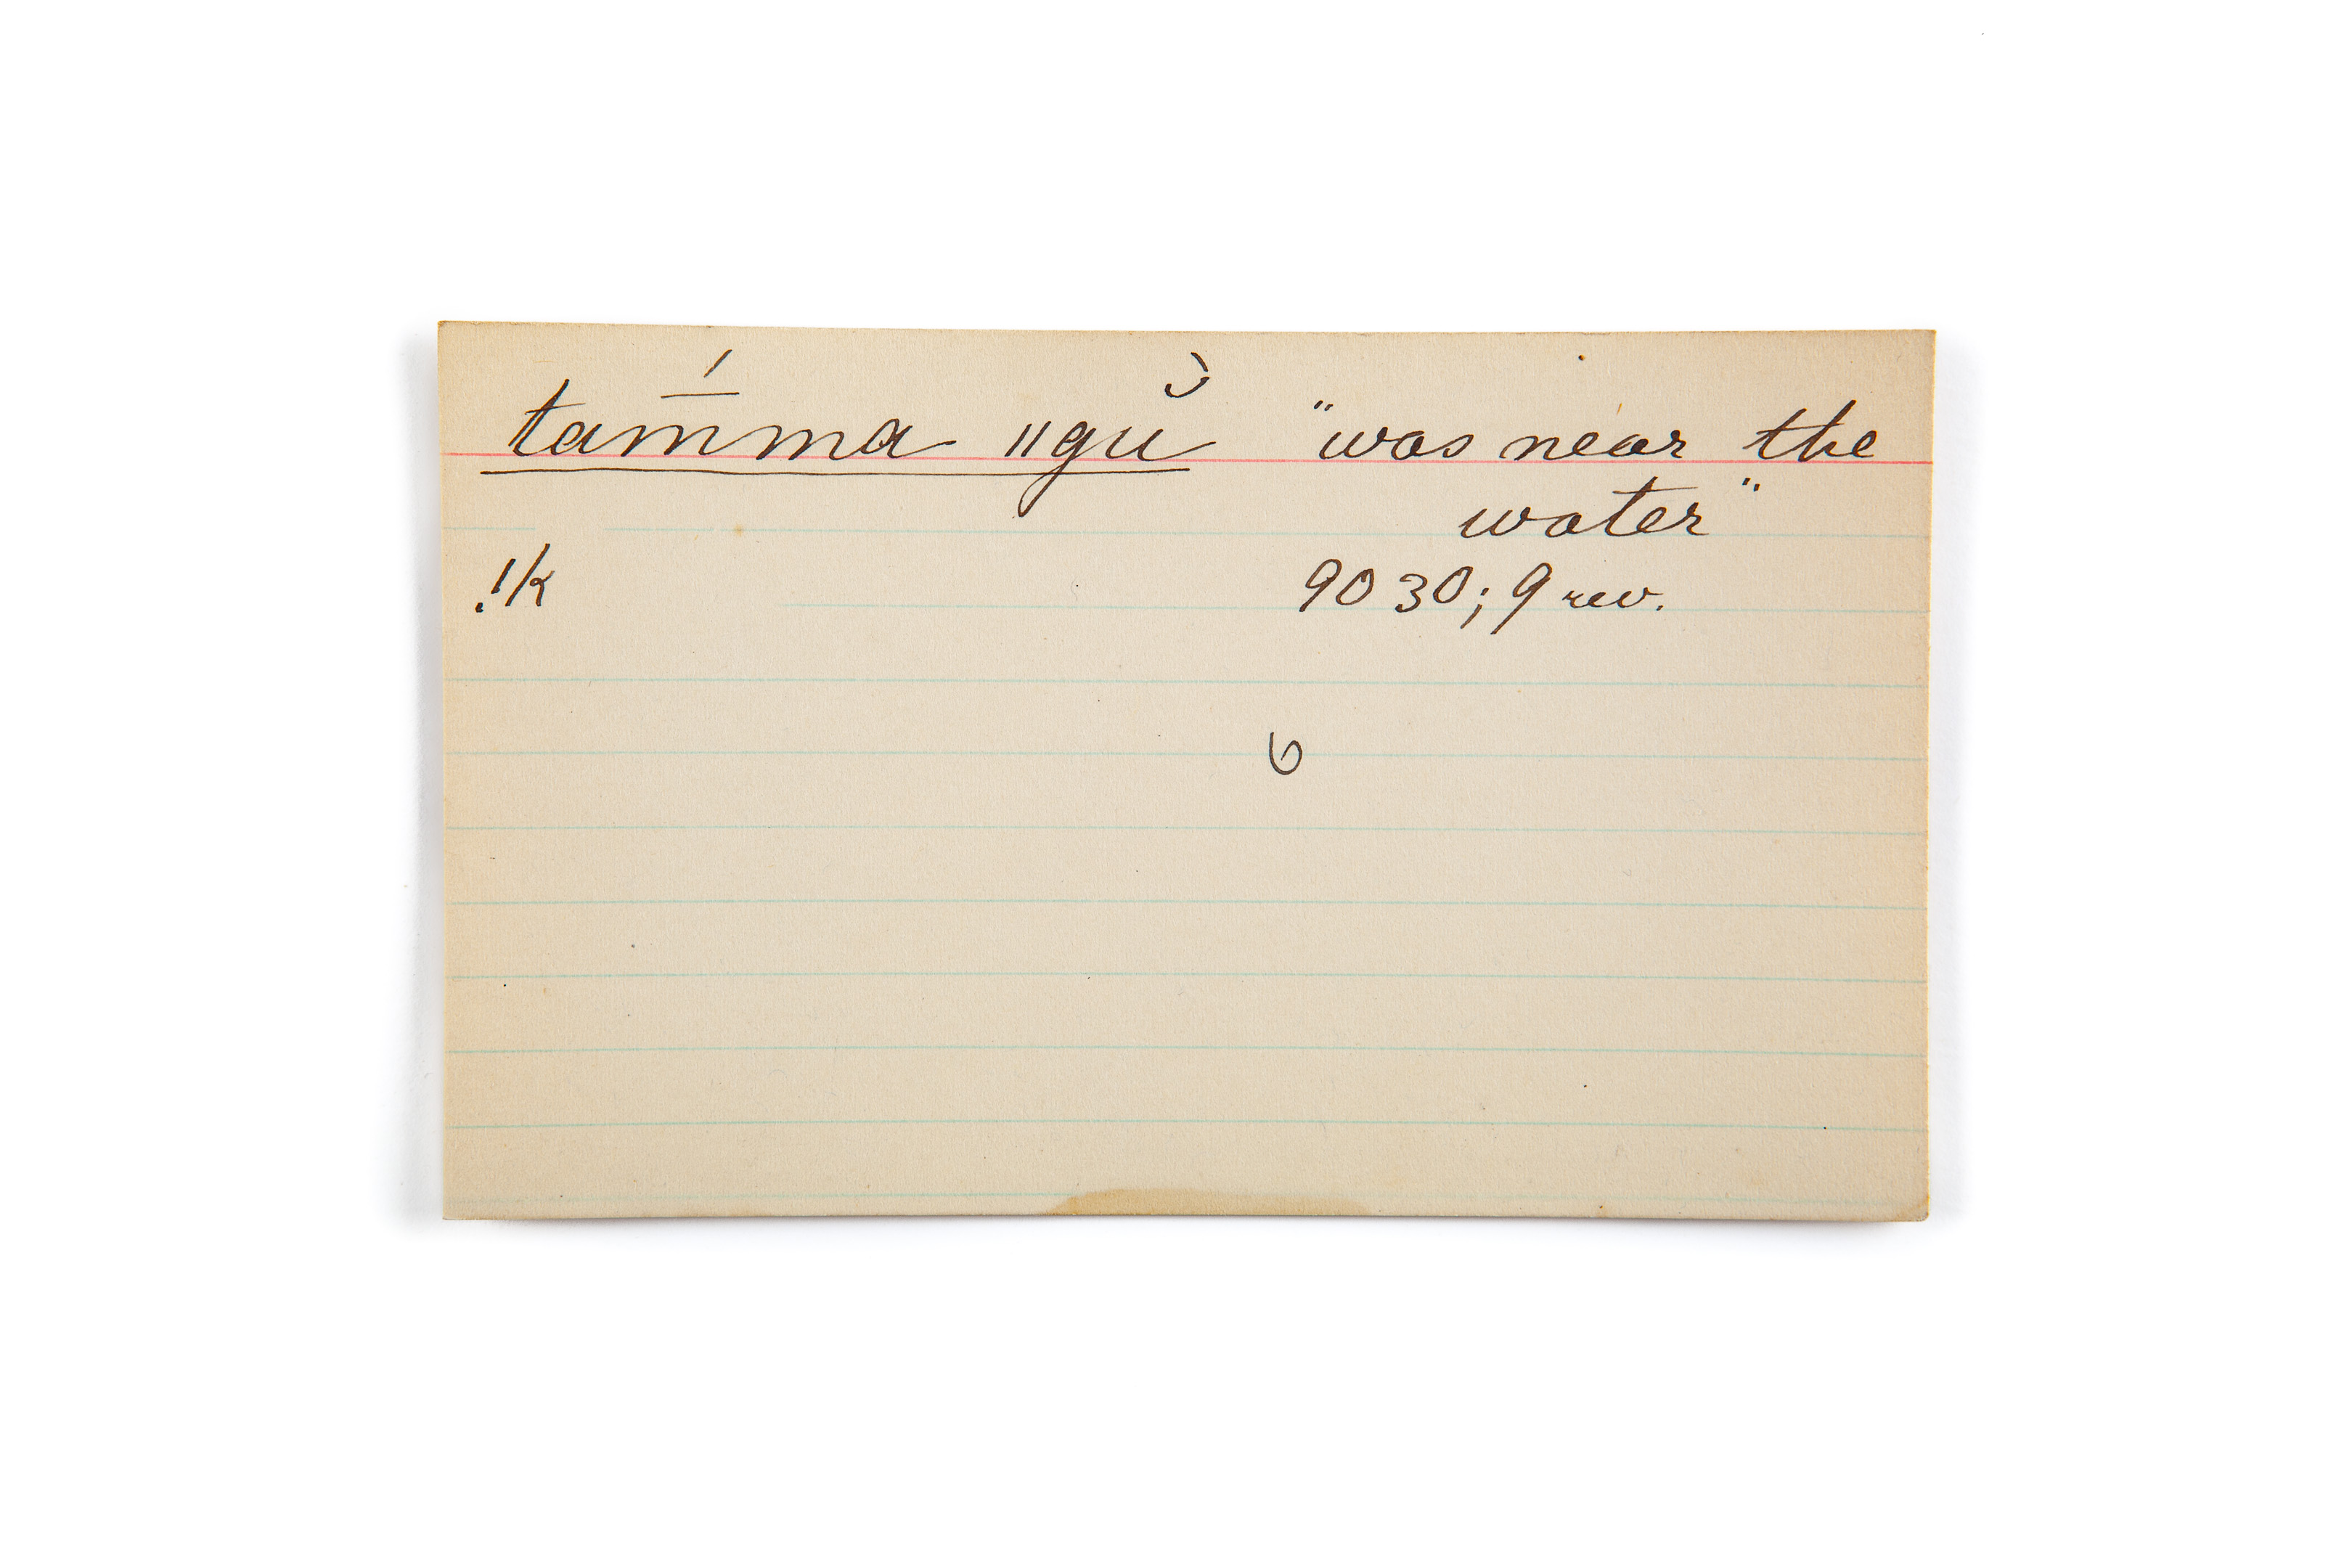 tam̄́ma ‖gŭ́ "was near the
water"
!k 9030; 9 rev.
6